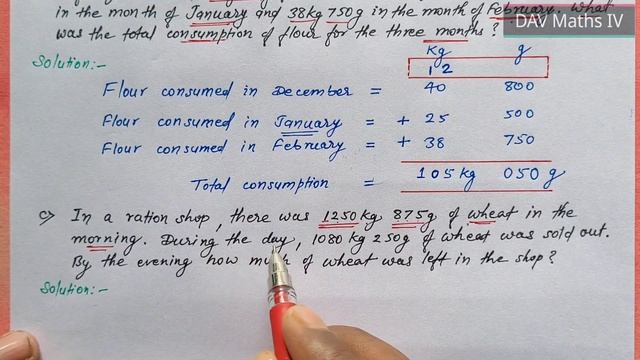 in the month of January and 38kg 750g in the month of February. What
was the total consumption of flour for the three months?
DAV Maths IV
Solution:-
Kg g
1 2
Flour consumed in December = 40 800
Flour consumed in January = + 25 500
Flour consumed in February = + 38 750
Total consumption = 105 kg 050 g
c) In a ration shop, there was 1250 kg 875g of wheat in the
morning. During the day, 1080 kg 250g of wheat was sold out.
By the evening how much of wheat was left in the shop?
Solution:-